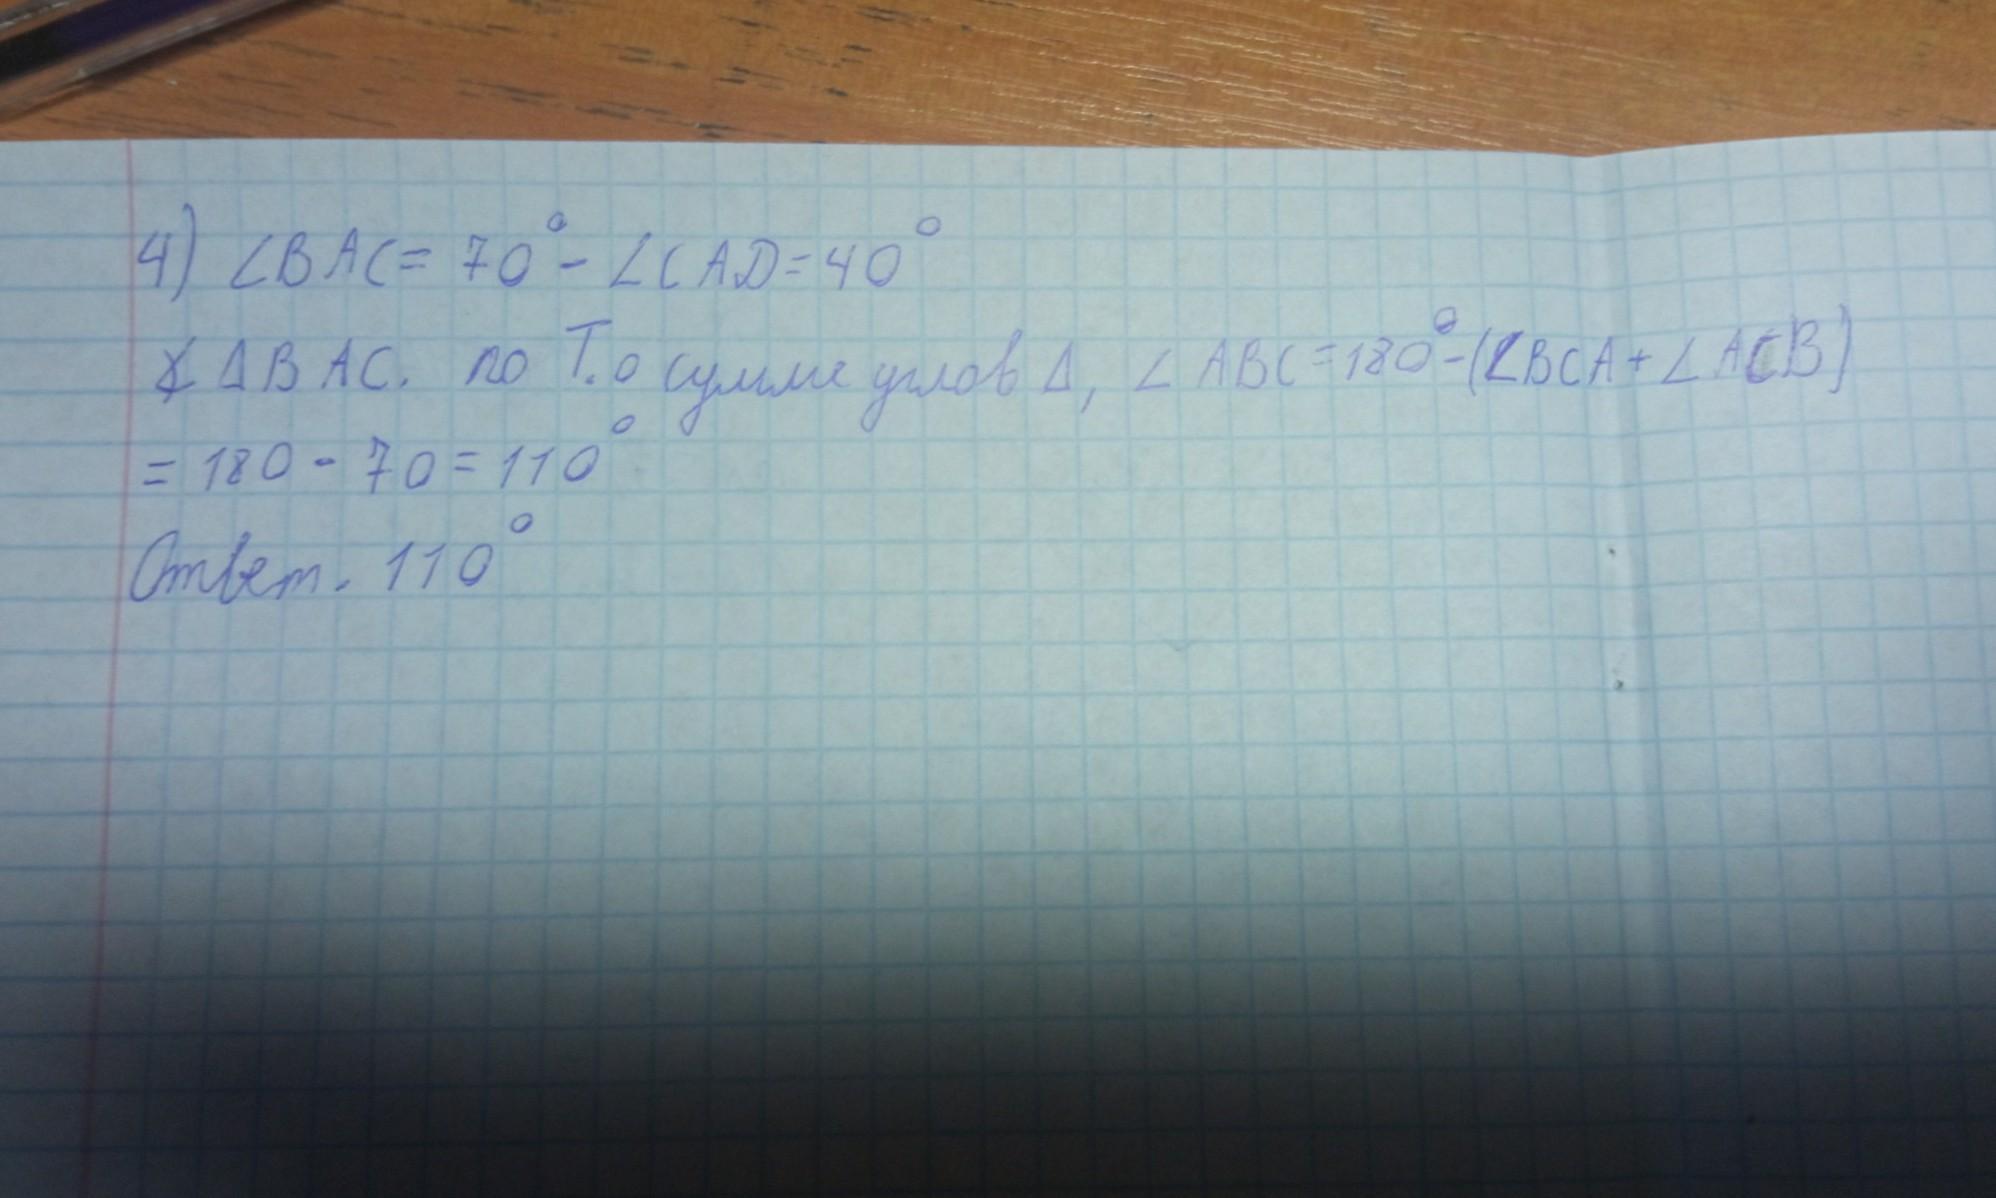 4) ∠BAC = 70° - ∠CAD = 40°
∆BAC. по Т. о сумме углов ∆, ∠ABC = 180° - (∠BCA + ∠ACB)
= 180 - 70 = 110°
Ответ. 110°